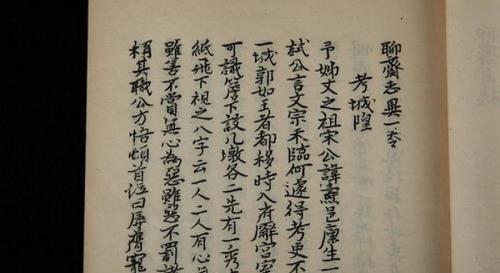 聊齋志異一卷
考城隍
予姊丈之祖宋公諱燾邑廩生一
試公言文宗未臨何遽得考吏不
一城郭如王者都移時入府廨宮室
可識簷下設几墩各二先有一秀
紙飛下視之八字云一人二人有心
雖善不賞無心為惡雖惡不罰諸
稱其職公方悟頓首泣曰辱膺寵